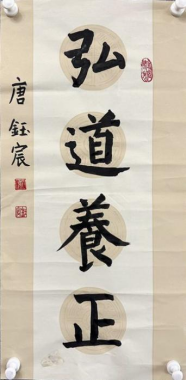 弘道養正
唐鈺宸